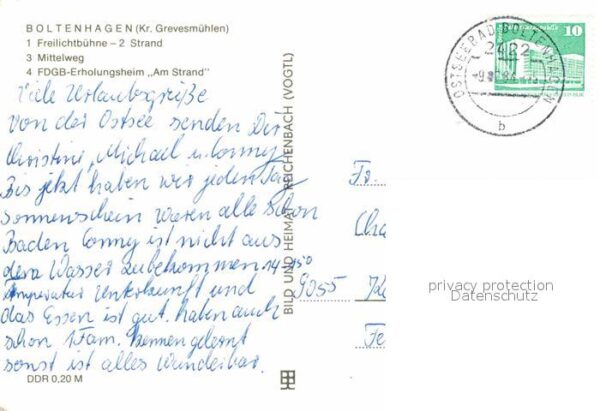 BOLTENHAGEN (Kr. Grevesmühlen)
1 Freilichtbühne – 2 Strand
3 Mittelweg
4 FDGB-Erholungsheim „Am Strand"
Viele Urlaubsgrüße
von der Ostsee senden Dir
Christine, Michael u. Conny
Bis jetzt haben wir jeden Tag
Sonnenschein waren alle schon
Baden Conny ist nicht aus
dem Wasser zubekommen 14-15°
Temperatur Unterkunft und
das Essen ist gut. haben auch
schon 1 Fam. kennen gelernt
sonst ist alles Wunderbar.
DDR 0,20 M
BILD UND HEIMAT REICHENBACH (VOGTL)
OSTSEEBAD BOLTENHAGEN
2422
b
10
Fr.
9055
privacy protection
Datenschutz